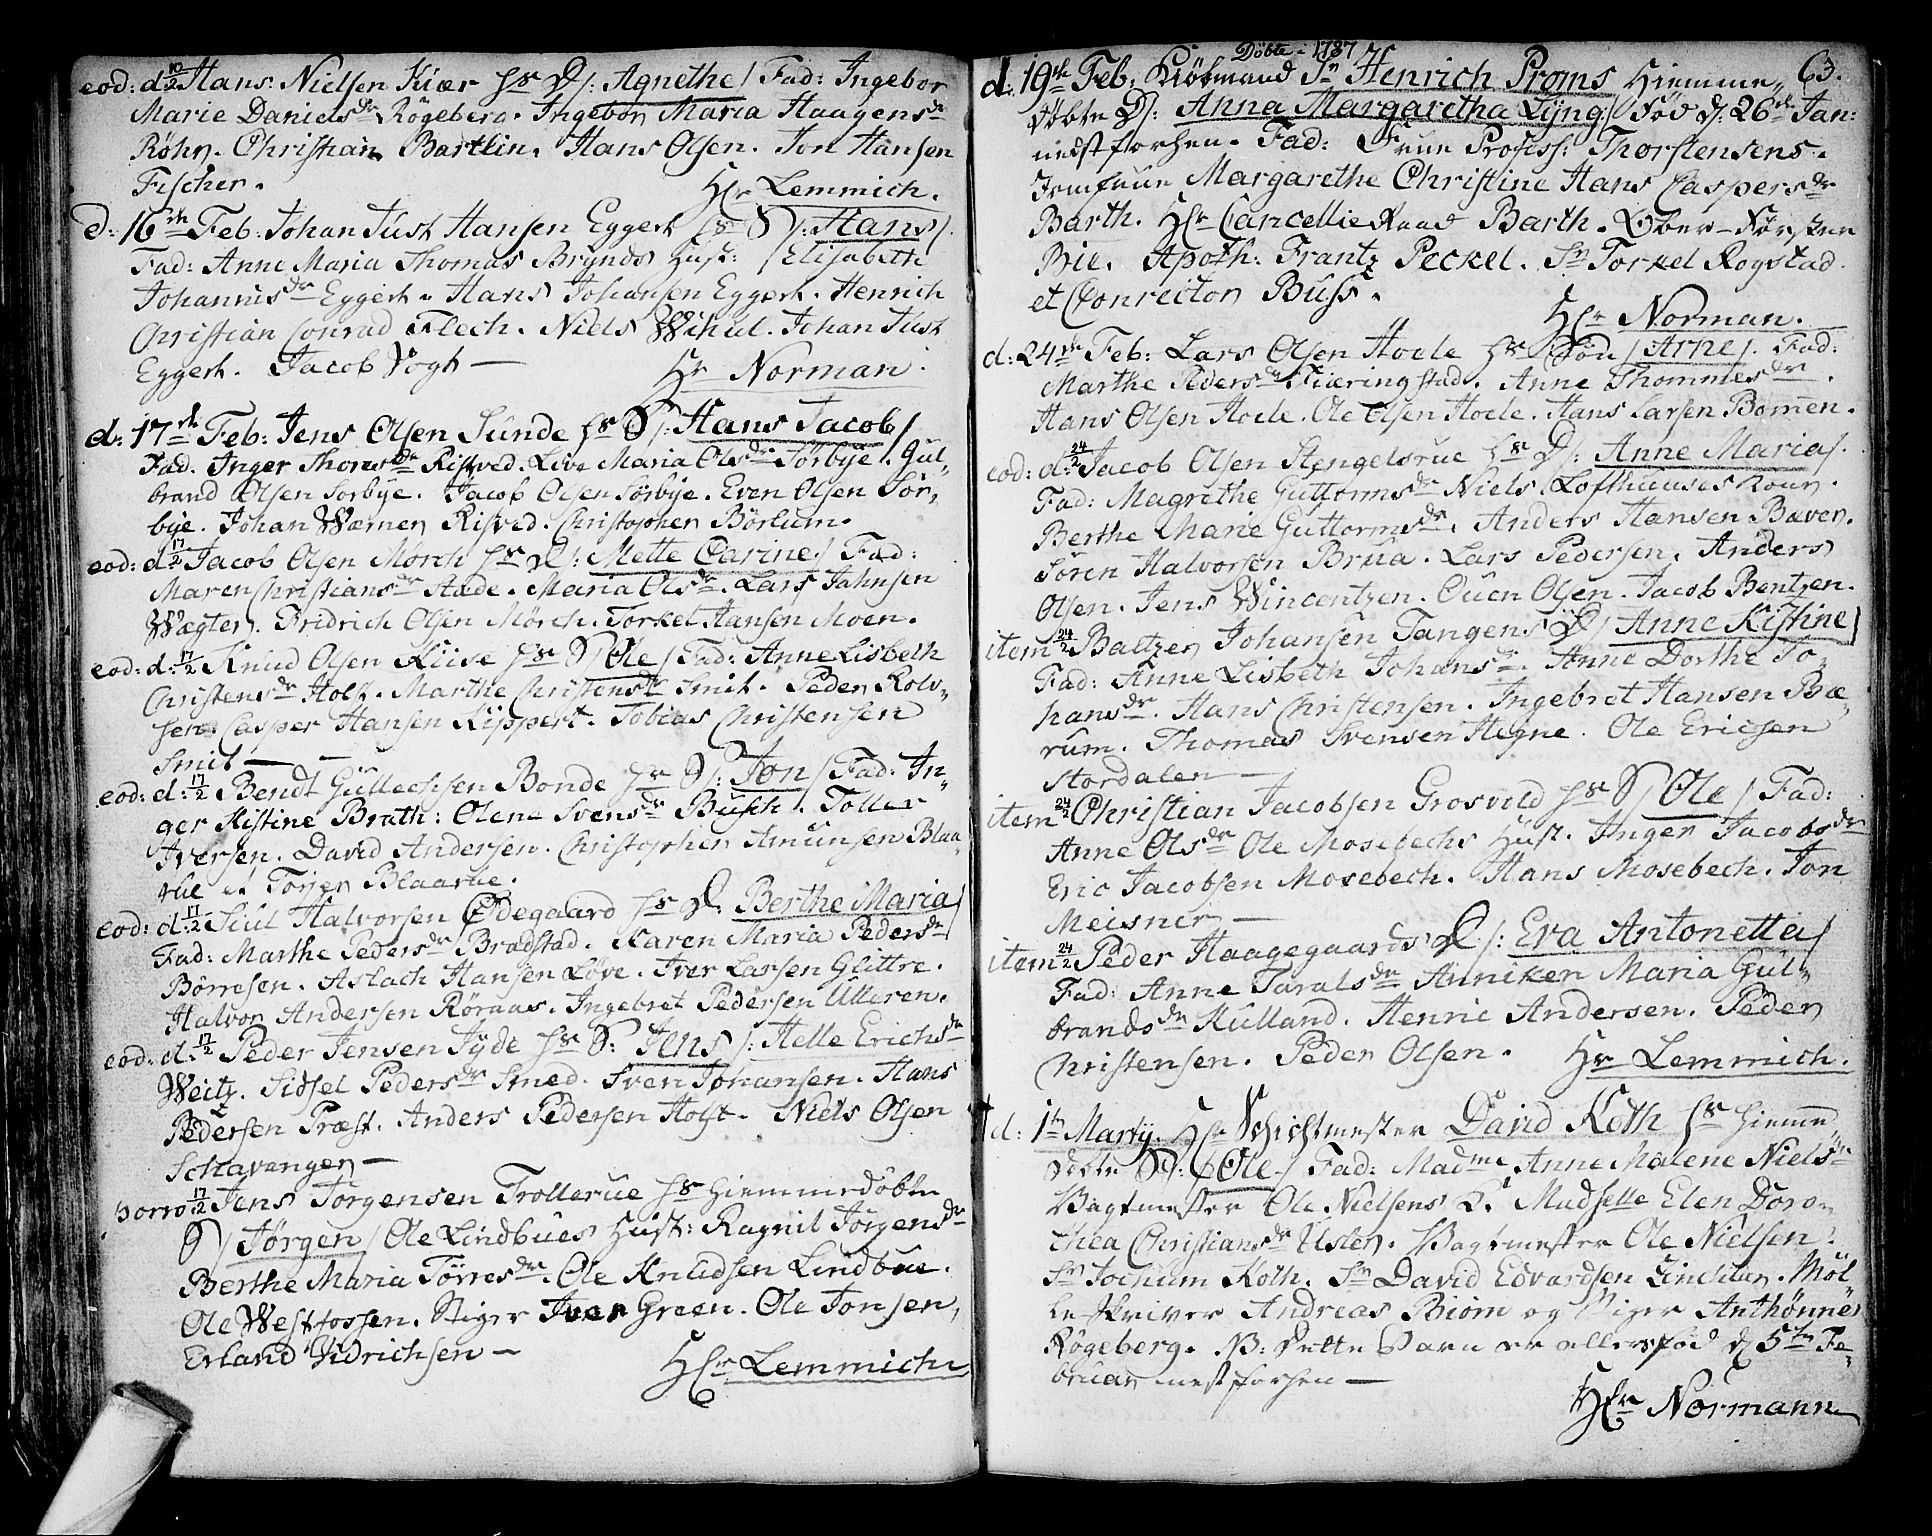 eod: d 10/2 Hans Nielsen Kiær hs: D/: Agnethe / Fad: Ingebor
Marie Daniels dr Røgeberg. Ingebor Maria Haagens dr
Røhr. Christian Bartlin. Hans Olsen. Jon Hansen
Fischer.
Hr Lemmich.
d: 16de Feb: Johan Just Hansen Eggert hs S/: Hans /.
Fad: Anne Maria Thomas Brynds Hust: / Elisabeth
Johannis dr Eggert. Hans Johansen Eggert. Henrich
Christian Conrad Flech. Niels Wihul. Johan Just
Eggert. Jacob Vogt —
Hr Norman.
d: 17de Feb: Jens Olsen Sunde hs S/: Hans Jacob /
Fad. Inger Thoms dr Risved. Live Maria Ols dr Sørbye. Gul-
brand Olsen Sorbye. Jacob Olsen Sørbye. Even Olsen Sør-
bye. Johan Wærner Risved. Christopher Børlum.
eod: d 17/2 Jacob Olsen Mørch hs D/: Mette Carine / Fad:
Maren Christians dr Aade. Maria Ols dr. Lars Jahnsen
Wægter. Fridrich Olsen Mørch. Torkel Hansen Moen.
eod: d: 17/2 Knud Olsen Kiise hs S/ Ole / Fad: Anne Lisbeth
Christens dr Holt. Marthe Christens dr Smit. Peder Rolv-
sen. Casper Hansen Kippert. Tobias Christensen
Smit —
eod: d: 17/2 Bendt Gullechsen Bonde hs S/: Jon / Fad: In-
ger Kistine Brath: Olene Svens dr Busch. Toller
Iversen. David Andersen. Christopher Amunsen Blaa-
rue et Torjer Blaarue.
eod: d: 17/2 Siul Halvorsen Ødegaard hs D: Berthe Maria /
Fad: Marthe Peders dr Bradstad. Karen Maria Peders dr
Børresen. Aslach Hansen Løve. Iver Larsen Glittre.
Halvor Andersen Røraas. Ingebret Pedersen Ulleren.
eod: d. 17/2 Peder Jensen Jyde hs S: Jens /: Helle Erichs dr
Weitz. Sidsel Peders dr Smed. Sven Johansen. Hans
Pedersen Præst. Anders Pedersen Holst. Niels Olsen
Schavenger —
17/2 Jens Jørgensen Trollerue hs hiemmedøbte
S/ Jørgen / Ole Lindbues Hust: Ragnil Jørgens dr
Berthe Maria Tørres dr. Ole Knudsen Lindbue.
Ole Westfossen. Stiger Iver Green. Ole Jonsen,
Erland Didrichsen —
Hr Lemmich
Døbte 1787
63.
d: 19de Feb: Kiøbmand Sr Henrich Proms hiemme-
døbte D/: Anna Margaretha Lyng / Fød d: 26de Jan:
nestforhen. Fad: Frue Profess: Thorstensens.
Jomfrue Margarethe Christine Hans Caspers dr
Barth. Hr Cancellie Raad Barth. Ober-Førster
Bie. Apoth: Frantz Peckel. Sr Torkel Rogstad
et Conrector Buss.
Hr Norman.
d: 24de Feb: Lars Olsen Hoele hs Søn / Arne /. Fad:
Marthe Peders dr Kiæringstad. Anne Thommes dr.
Hans Olsen Hoele. Ole Olsen Hoele. Hans Larsen Bomen.
eod: d: 24/2 Jacob Olsen Stengelsrue hs D/: Anne Maria /.
Fad: Magrethe Guttorms dr Niels Lofthuuses Kone.
Berthe Marie Guttorms dr. Anders Hansen Bæver.
Sören Halvorsen Brua. Lars Pedersen. Anders
Olsen. Jens Wincentzen. Ouen Olsen. Jacob Bentzen.
item 24/2 Baltzer Johansen Tangens D/ Anne Kistine /
Fad: Anne Lisbeth Johans dr. Anne Dorthe Jo-
hans dr. Hans Christensen. Ingebret Hansen Bæ-
rum. Thomas Svensen Hegne. Ole Ericsen
Stordalen —
item 24/2 Christian Jacobsen Grosvold hs S/ Ole / Fad:
Anne Ols dr Ole Mosebechs Hust. Inger Jacobs dr
Eric Jacobsen Mosebech. Hans Mosebech. Jon
Meisner —
item 24/2 Peder Haagegaards D/: Eva Antonetta /
Fad: Anne Tarals dr Anniken Maria Gul-
brands dr Kulland. Henric Andersen. Peder
Christensen. Peder Olsen. Hr Lemmich.
d: 1te Martij. Hr Schichtmester David Koth hs hiemme
døbte S/: Ole / Fad: Madme Anne Malene Niels dr
Vagtmester Ole Nielsens K. Madselle Elen Doro-
thea Christians dr Usler. Vagtmester Ole Nielsen.
Sr Jochum Koth. Sr David Edvardsen Lindiær. Møl-
leskriver Andreas Biørn og Stiger Anthønne
Røgeberg. NB: Dette Barn er ellers fød d 5te Fe-
bruar nestforhen —
Hr Normann